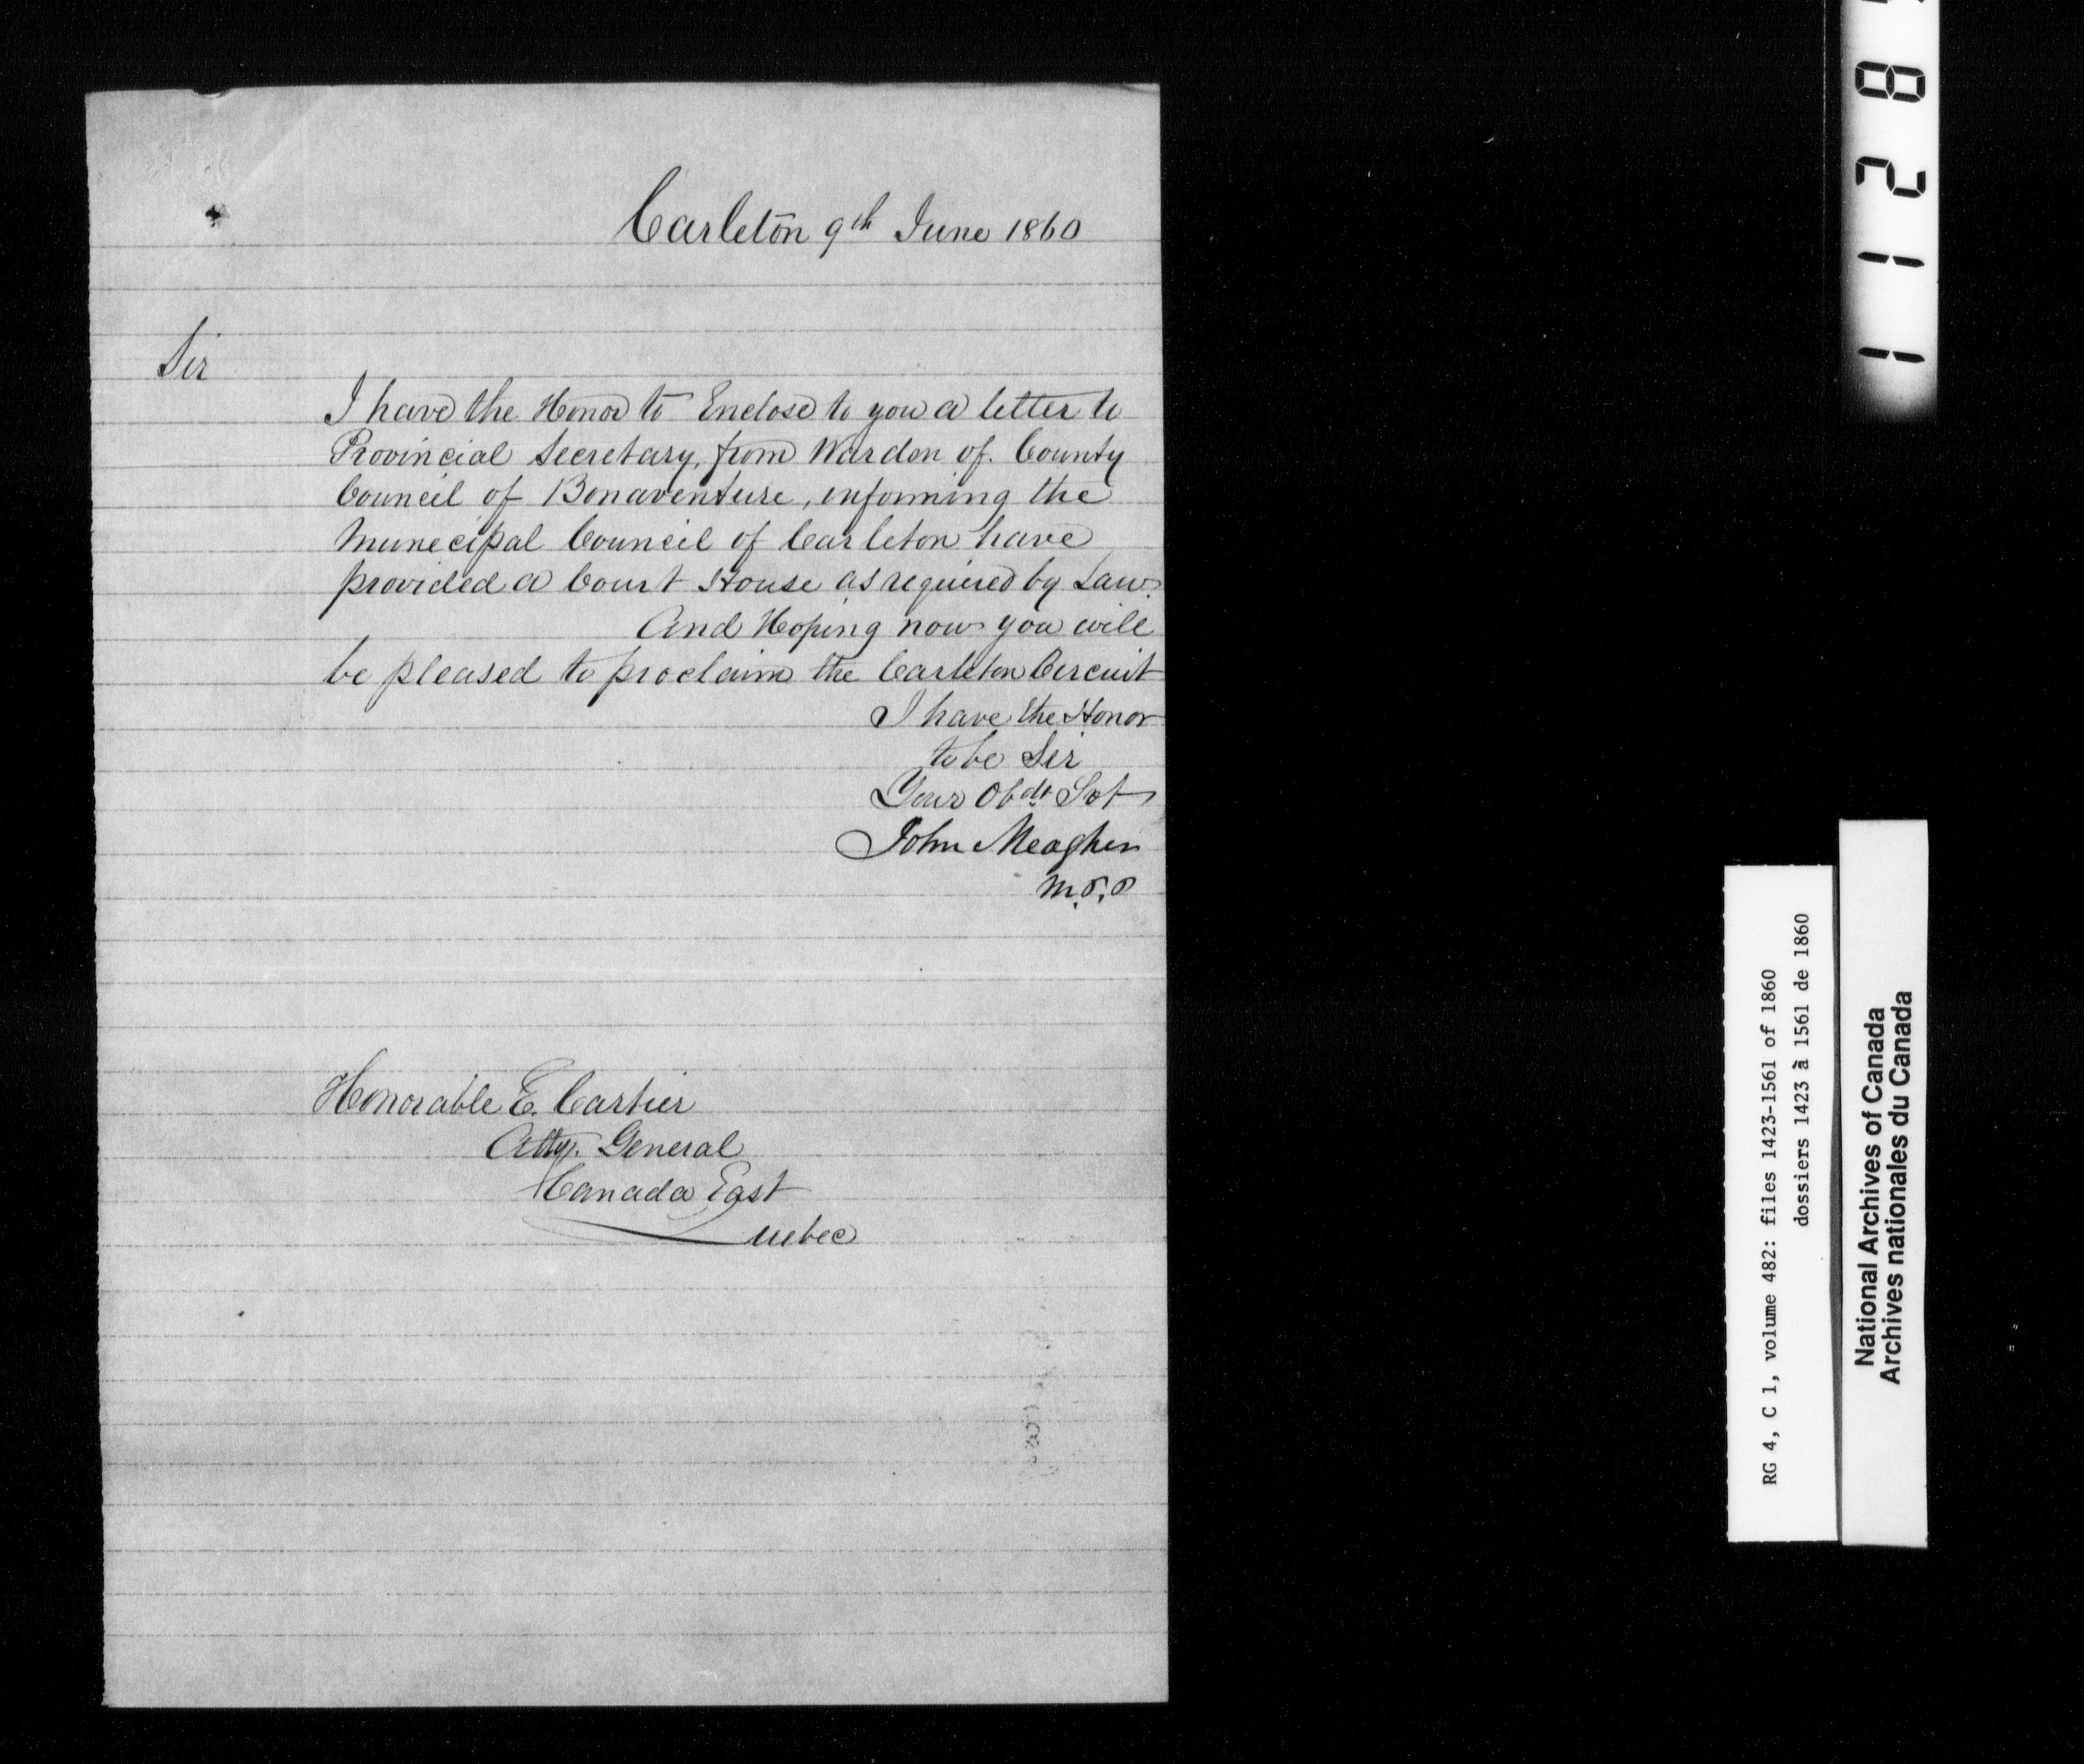 Carleton 9th June 1860
Sir
I have the Honor to Enclose to you a letter to
Provincial Secretary, from Warden of County
Council of Bonaventure, informing the
Municipal Council of Carleton have
provided a Court House as required by Law.
And Hoping now you will
be pleased to proclaim the Carleton Circuit
I have the Honor
to be Sir
Your Obdt Svt
John Meagher
M.P.P
Honorable E. Cartier
Atty. General
Canada East
Quebec
1128
RG 4, C 1, volume 482: files 1423-1561 of 1860
dossiers 1423 à 1561 de 1860
National Archives of Canada
Archives nationales du Canada